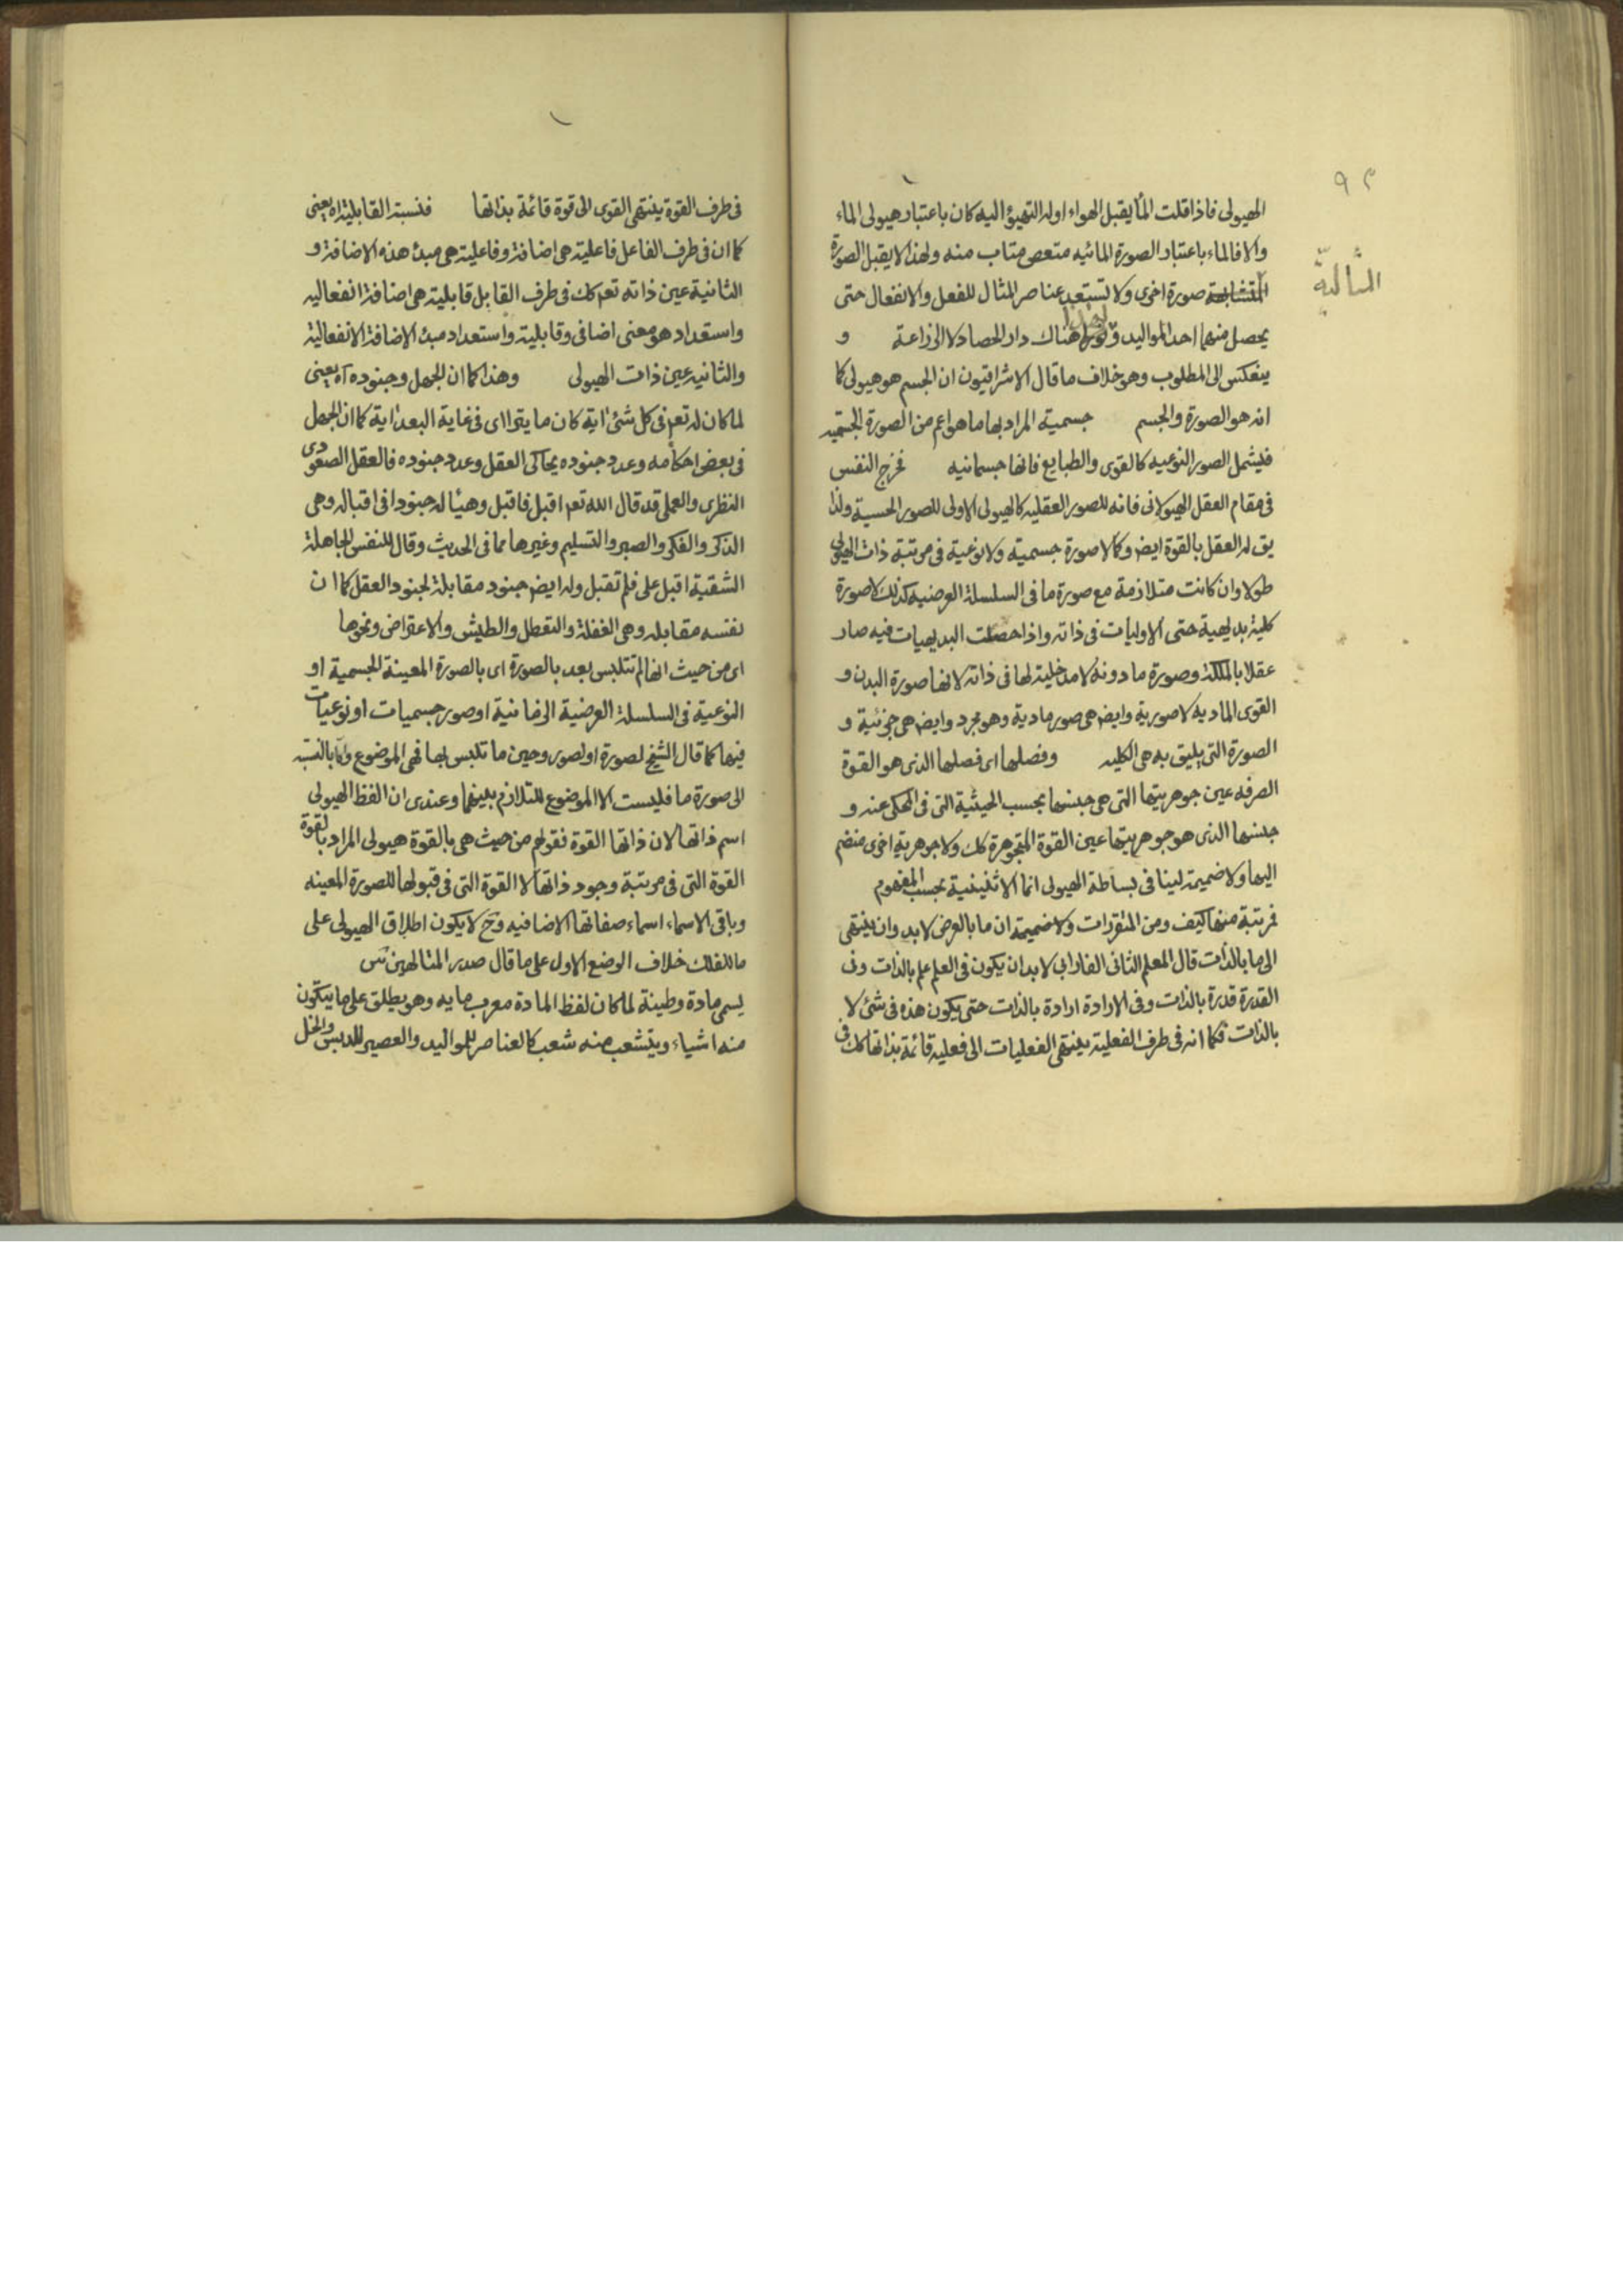 ٩٢
الهيولى فاذا قلت الماء يقبل الهواء او له التهيؤ اليه كان باعتبار هيولى الماء
والا فالماء باعتبار الصورة المائيه متعص متاب منه ولهذا لا يقبل الصورة
المثالية
صورة اخرى ولا تستعد عناصر المثال للفعل والانفعال حتى
يحصل منهما احد المواليد هناك دار الحصاد لا الزراعة و
ينعكس الى المطلوب وهو خلاف ما قال الاشراقيون ان الجسم هو هيولى كما
انه هو الصورة والجسم جسمية المراد بها ما هو اعم من الصورة الجسميه
فليشمل الصور النوعيه كالقوى والطبايع فانها جسمانيه فخرج النفس
فى مقام العقل الهيولانى فانه للصور العقليه كالهيولى الاولى للصور الحسية ولذا
يق له العقل بالقوة ايض وكما لا صورة جسمية ولا نوعية فى مرتبة ذات الهيولى
طولا وان كانت متلازمة مع صورة ما فى السلسلة العرضيه كذلك لا صورة
كلية بديهية حتى الاوليات فى ذاته واذا حصلت البديهيات فيه صار
عقلا بالملكة وصورة ما دونه لا مدخلية لها فى ذاته لانها صورة البدن و
القوى الماديه لا صورية وايض هى صور مادية وهو مجرد وايض هى جزئية و
الصورة التى يليق به هى الكليه وفصلها اى فصلها الذى هو القوة
الصرفه عين جوهريتها التى هى جنسها بحسب الحيثية التى فى المحكى عنه و
جنسها الذى هو جوهريتها عين القوة المتجوهرة كك ولا جوهرية اخرى منضم
اليها ولا ضميمة لينا فى بساطة الهيولى انما الاثنينية بحسب المفهوم
فمرتبة منها كيف ومن المتقررات ولا ضميمة ان ما بالعرض لا بد وان ينتهى
الى ما بالذات قال المعلم الثانى الفارابى لا بد ان يكون فى العلم علم بالذات وفى
القدرة قدرة بالذات وفى الارادة ارادة بالذات حتى يكون هذه فى شئ لا
بالذات فكما انه فى طرف الفعلية ينتهى الفعليات الى فعلية قائمة بذاتها كك فى
فى طرف القوة ينتهى القوى الى قوة قائمة بذاتها فنسبة القابلية اه يعنى
كما ان فى طرف الفاعل فاعلية هى اضافة وفاعلية هى مبدء هذه الاضافة و
الثانية عين ذاته تعم كك فى طرف القابل قابلية هى اضافة انفعاليه
واستعداد هو معنى اضافى وقابلية واستعداد مبدء الاضافة الانفعالية
والثانيه عين ذات الهيولى وهذا كما ان للجهل وجنوده اه يعنى
لما كان له تعم فى كل شئ اية كان ما يترااى فى غاية البعد اية كما ان الجهل
فى بعض احكامه وعدد جنوده يحاكى العقل وعدد جنوده فالعقل الصعودى
النظرى والعملى قد قال الله تعم اقبل فاقبل وهيئا له جنودا فى اقباله وهى
الذكر والفكر والصبر والتسليم وغيرها مما فى الحديث وقال للنفس الجاهلة
الشقية اقبل على فلم تقبل وله ايض جنود مقابلة لجنود العقل كما ان
نفسه مقابله وهى الغفلة والتعطل والطيش والاعتراض ونحوها
اى من حيث انها لم تتلبس بعد بالصورة اى بالصورة المعينة الجسمية او
النوعية فى السلسلة العرضية الزمانية او صور جسميات او نوعيات
فيها كما قال الشيخ لصورة او لصور وحين ما تلبس بها فهى الموضوع واما بالنسبة
الى صورة ما فليست الا الموضوع للتلازم بينهما وعندى ان الفظ الهيولى
اسم ذاتها لان ذاتها القوة فقولهم من حيث هى بالقوة هيولى المراد بالقوة
القوة التى فى مرتبة وجود ذاتها لا القوة التى فى قبولها للصورة المعينه
وباقى الاسماء اسماء صفاتها الاضافيه وح لا يكون اطلاق الهيولى على
ما للفلك خلاف الوضع الاول على ما قال صدر المتالهين س
يسمى مادة وطينة لما كان لفظ المادة معرب مايه وهو يطلق على ما يتكون
منه اشياء ويتشعب منه شعب كالعناصر للمواليد والعصير للدبس والخل